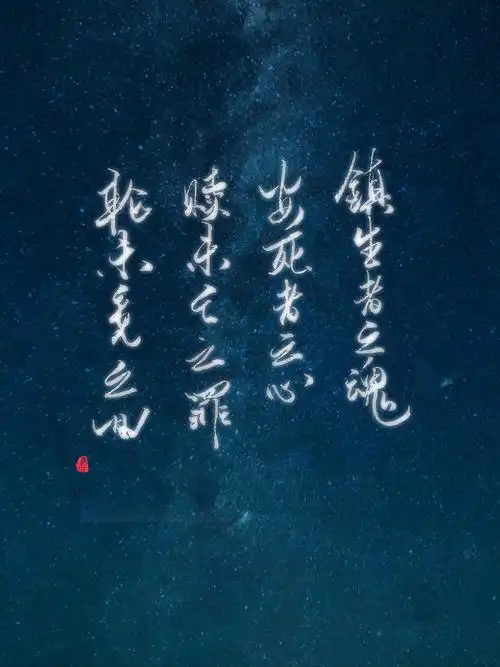 鎮生者之魂
安死者之心
赎未亡之罪
轮未竟之回